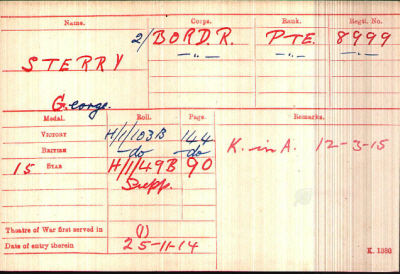 Name. Corps. Rank. Regtl. No.
2/ BORD.R. PTE. 8999
STERRY -"- -"- -"-
George.
Medal. Roll. Page. Remarks.
VICTORY H/1/103B 144
BRITISH -do- -do- K. in A. 12-3-15
15 STAR H/1/49B 90
Supp.
Theatre of War first served in (1)
Date of entry therein 25-11-14 K. 1380